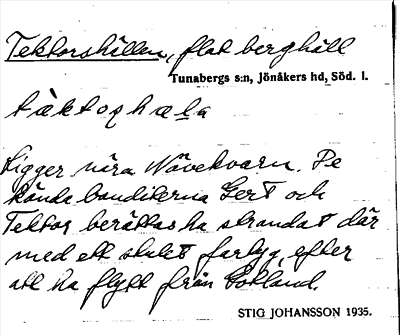 Tektorshällen, flat berghäll
Tunabergs s:n, Jönåkers hd, Söd. l.
Ligger nära Nävekvarn. De
kända banditerna Gert och
Tektor berättas ha strandat där
med ett stulet fartyg, efter
att ha flytt från Gotland.
STIG JOHANSSON 1935.